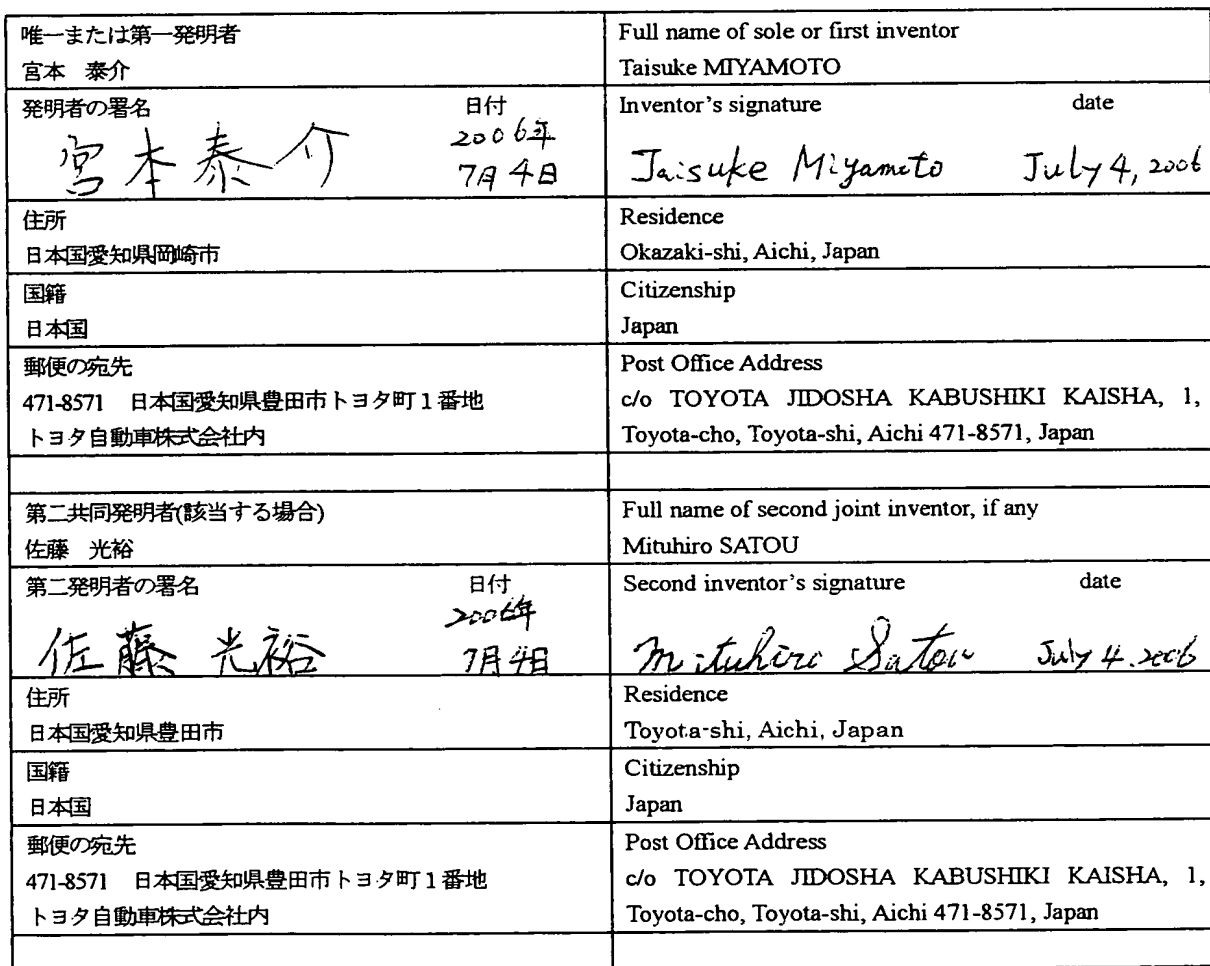 唯一または第一発明者
宮本 泰介
Full name of sole or first inventor
Taisuke MIYAMOTO
発明者の署名 日付
2006年
宮本泰介 7月4日
Inventor's signature date
Taisuke Miyamoto July 4, 2006
住所
日本国愛知県岡崎市
Residence
Okazaki-shi, Aichi, Japan
国籍
日本国
Citizenship
Japan
郵便の宛先
471-8571 日本国愛知県豊田市トヨタ町1番地
トヨタ自動車株式会社内
Post Office Address
c/o TOYOTA JIDOSHA KABUSHIKI KAISHA, 1,
Toyota-cho, Toyota-shi, Aichi 471-8571, Japan
第二共同発明者(該当する場合)
佐藤 光裕
Full name of second joint inventor, if any
Mituhiro SATOU
第二発明者の署名 日付
2006年
佐藤 光裕 7月4日
Second inventor's signature date
Mituhiro Satou July 4. 2006
住所
日本国愛知県豊田市
Residence
Toyota-shi, Aichi, Japan
国籍
日本国
Citizenship
Japan
郵便の宛先
471-8571 日本国愛知県豊田市トヨタ町1番地
トヨタ自動車株式会社内
Post Office Address
c/o TOYOTA JIDOSHA KABUSHIKI KAISHA, 1,
Toyota-cho, Toyota-shi, Aichi 471-8571, Japan